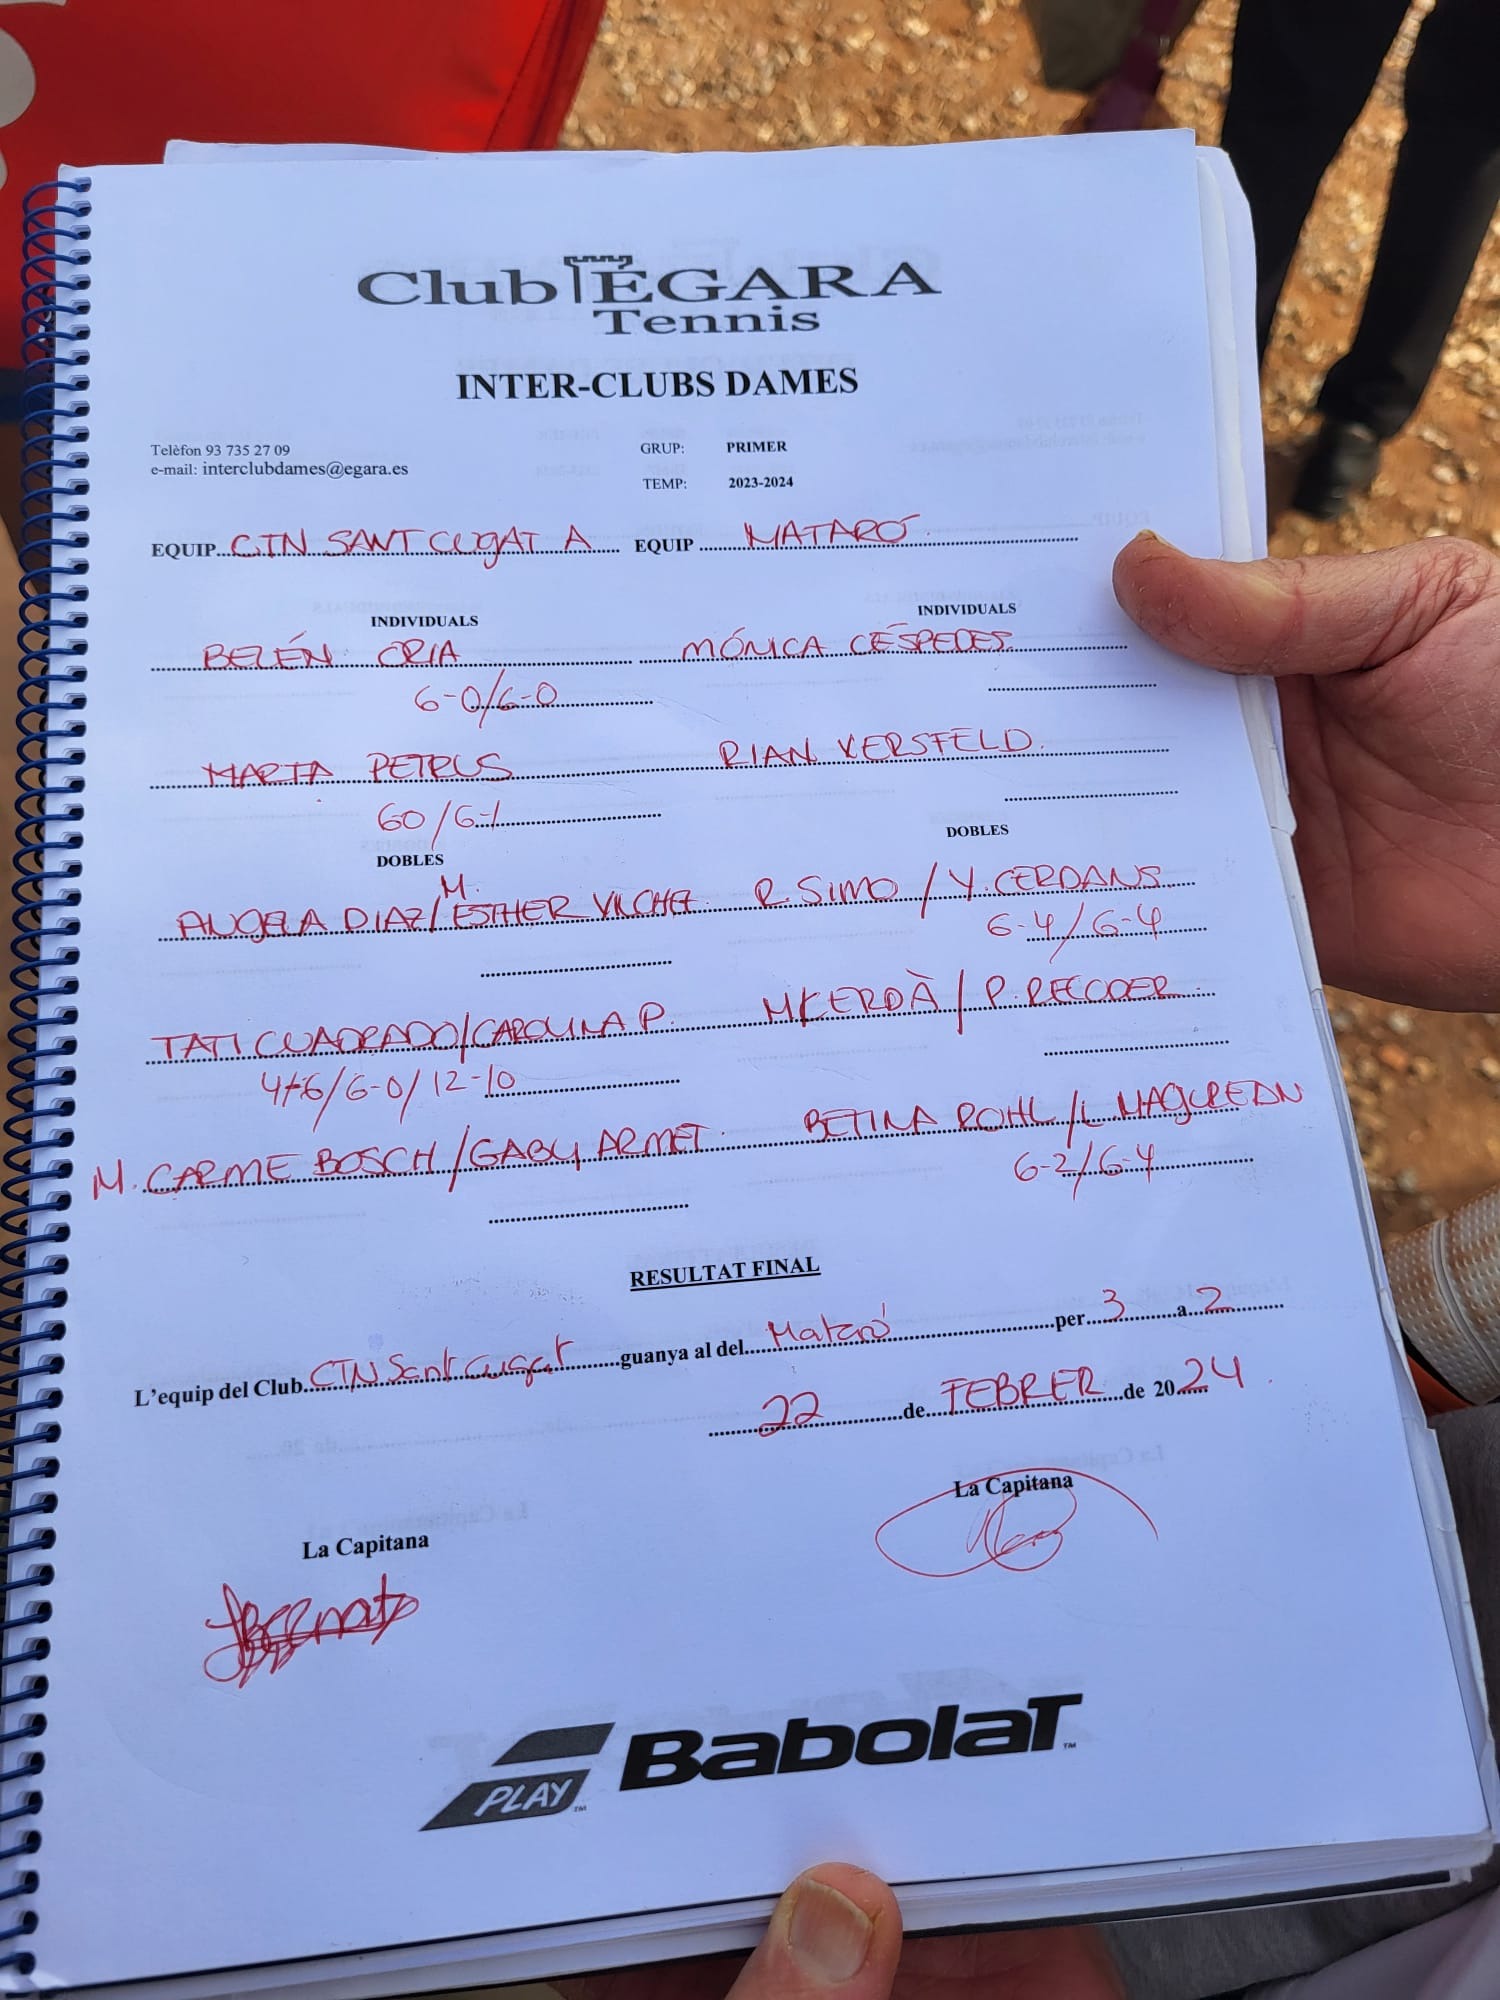 Club ÉGARA
Tennis
INTER-CLUBS DAMES
Telèfon 93 735 27 09 GRUP: PRIMER
e-mail: interclubdames@egara.es
TEMP: 2023-2024
EQUIP CTN SANT CUGAT A EQUIP MATARÓ
INDIVIDUALS INDIVIDUALS
BELÉN ORIA MÓNICA CÉSPEDES
6-0/6-0
MARTA PETRUS RIAN KERSFELD
60/6-1
DOBLES DOBLES
M.
ANGELA DIAZ/ESTHER VILCHEZ R. SIMO / Y. CERDANS
6-4/6-4
TATI CUADRADO/CAROLINA P. M CERDÀ / P. RECODER
4-6/6-0/12-10
M. CARME BOSCH/GABY ARMET BETINA ROHL/L
6-2/6-4
RESULTAT FINAL
L'equip del Club CTN Sant Cugat guanya al del Mataró per 3 a 2
22 de FEBRER de 2024
La Capitana La Capitana
PLAY Babolat